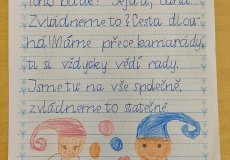 Zvládneme to? Cesta dlou-
há! Máme přece kamarády,
ti si vždycky vědí rady.
Jsme tu na vše společně,
zvládneme to statečně.